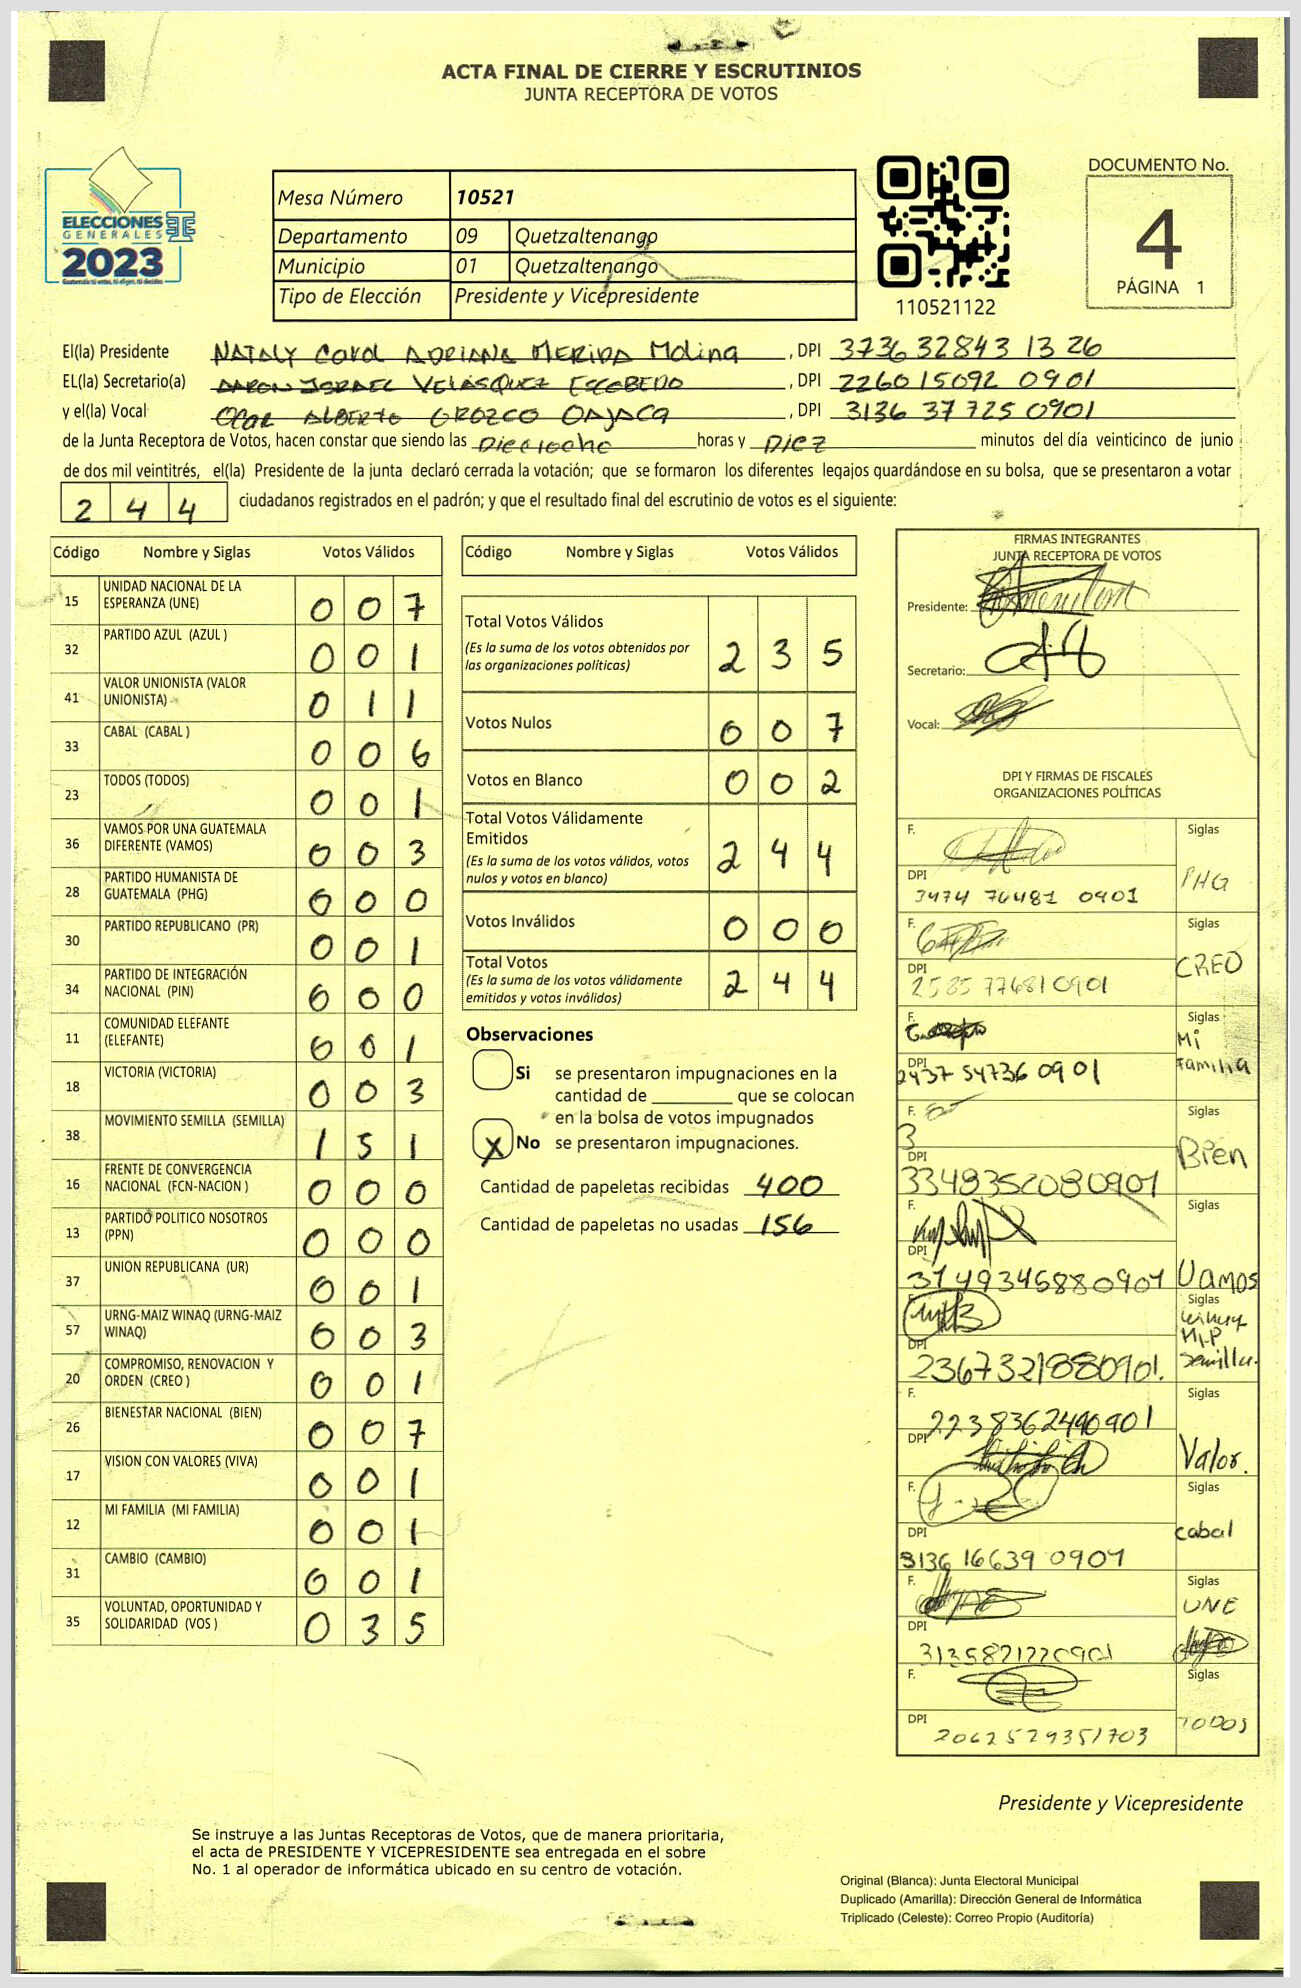 ACTA FINAL DE CIERRE Y ESCRUTINIOS
JUNTA RECEPTORA DE VOTOS
ELECCIONES
GENERALES
2023
Mesa Número 10521
Departamento 09 Quetzaltenango
Municipio 01 Quetzaltenango
Tipo de Elección Presidente y Vicepresidente
110521122
DOCUMENTO No.
4
PÁGINA 1
El(la) Presidente NATALY Carol ADRIANA MERIDA Molina, DPI 3736 32843 13 26
EL(la) Secretario(a) AARON ISRAEL VELÁSQUEZ ESCOBEDO, DPI 2260 15092 0901
y el(la) Vocal OSCAR ALBERTO OROZCO OAJACA, DPI 3136 37725 0901
de la Junta Receptora de Votos, hacen constar que siendo las Dieciocho horas y DIEZ minutos del día veinticinco de junio
de dos mil veintitrés, el(la) Presidente de la junta declaró cerrada la votación; que se formaron los diferentes legajos guardándose en su bolsa, que se presentaron a votar
2 4 4 ciudadanos registrados en el padrón; y que el resultado final del escrutinio de votos es el siguiente:
Código Nombre y Siglas Votos Válidos
15 UNIDAD NACIONAL DE LA ESPERANZA (UNE) 0 0 7
32 PARTIDO AZUL (AZUL ) 0 0 1
41 VALOR UNIONISTA (VALOR UNIONISTA) 0 1 1
33 CABAL (CABAL ) 0 0 6
23 TODOS (TODOS) 0 0 1
36 VAMOS POR UNA GUATEMALA DIFERENTE (VAMOS) 0 0 3
28 PARTIDO HUMANISTA DE GUATEMALA (PHG) 0 0 0
30 PARTIDO REPUBLICANO (PR) 0 0 1
34 PARTIDO DE INTEGRACIÓN NACIONAL (PIN) 0 0 0
11 COMUNIDAD ELEFANTE (ELEFANTE) 0 0 1
18 VICTORIA (VICTORIA) 0 0 3
38 MOVIMIENTO SEMILLA (SEMILLA) 1 5 1
16 FRENTE DE CONVERGENCIA NACIONAL (FCN-NACION ) 0 0 0
13 PARTIDO POLITICO NOSOTROS (PPN) 0 0 0
37 UNION REPUBLICANA (UR) 0 0 1
57 URNG-MAIZ WINAQ (URNG-MAIZ WINAQ) 0 0 3
20 COMPROMISO, RENOVACION Y ORDEN (CREO ) 0 0 1
26 BIENESTAR NACIONAL (BIEN) 0 0 7
17 VISION CON VALORES (VIVA) 0 0 1
12 MI FAMILIA (MI FAMILIA) 0 0 1
31 CAMBIO (CAMBIO) 0 0 1
35 VOLUNTAD, OPORTUNIDAD Y SOLIDARIDAD (VOS ) 0 3 5
Código Nombre y Siglas Votos Válidos
Total Votos Válidos 2 3 5
(Es la suma de los votos obtenidos por las organizaciones políticas)
Votos Nulos 0 0 7
Votos en Blanco 0 0 2
Total Votos Válidamente Emitidos 2 4 4
(Es la suma de los votos válidos, votos nulos y votos en blanco)
Votos Inválidos 0 0 0
Total Votos 2 4 4
(Es la suma de los votos válidamente emitidos y votos inválidos)
Observaciones
Si se presentaron impugnaciones en la
cantidad de ________ que se colocan
en la bolsa de votos impugnados
X No se presentaron impugnaciones.
Cantidad de papeletas recibidas 400
Cantidad de papeletas no usadas 156
FIRMAS INTEGRANTES
JUNTA RECEPTORA DE VOTOS
Presidente:
Secretario:
Vocal:
DPI Y FIRMAS DE FISCALES
ORGANIZACIONES POLÍTICAS
F. Siglas
PHG
DPI 3474 76481 0901
F. Siglas
CREO
DPI 2585 77681 0901
F. Siglas
Mi Familia
DPI 2437 54736 0901
F. Siglas
Bien
DPI 3348352080901
F. Siglas
Vamos
DPI 3149346880901
Siglas
Winaq
MLP
Semilla.
DPI 2367321880901.
F. Siglas
2238362490901
DPI Valor.
F. Siglas
cabal
DPI 3136 16639 0901
F. Siglas
UNE
DPI 3135821220901
F. Siglas
TODOS
DPI 2062529351703
Presidente y Vicepresidente
Se instruye a las Juntas Receptoras de Votos, que de manera prioritaria,
el acta de PRESIDENTE Y VICEPRESIDENTE sea entregada en el sobre
No. 1 al operador de informática ubicado en su centro de votación.
Original (Blanca): Junta Electoral Municipal
Duplicado (Amarilla): Dirección General de Informática
Triplicado (Celeste): Correo Propio (Auditoría)